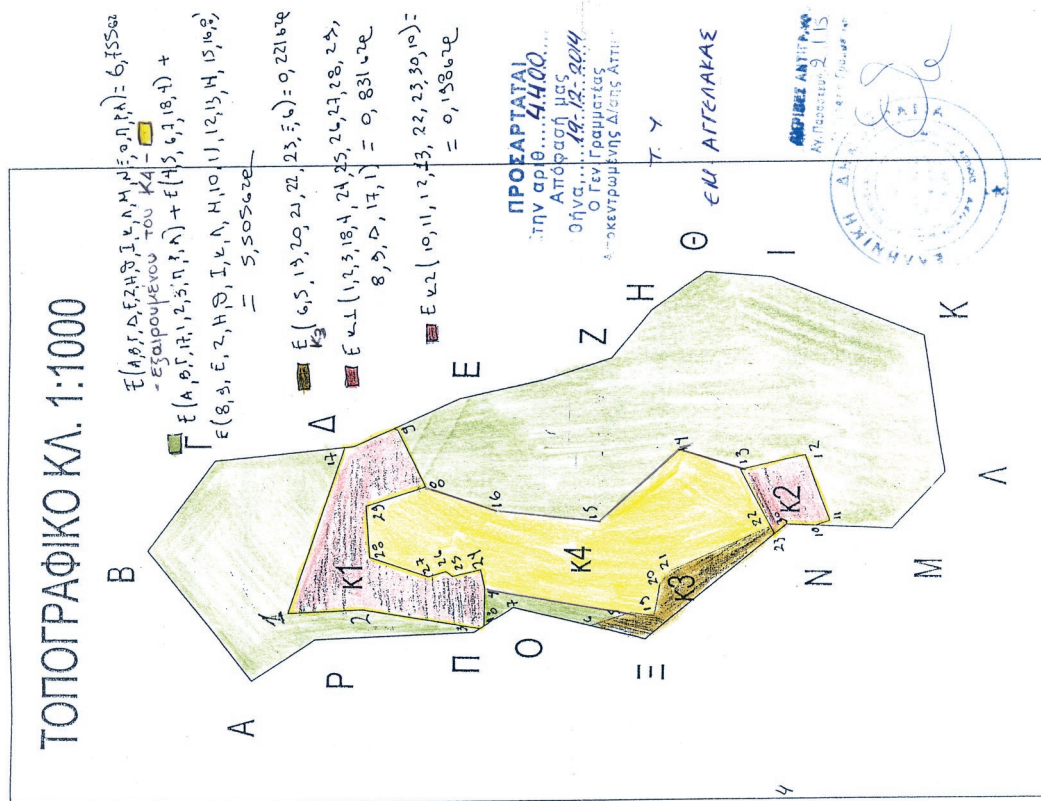 ΤΟΠΟΓΡΑΦΙΚΟ ΚΛ. 1:1000
Ε(Α,Β,Γ,Δ,Ε,Ζ,Η,Θ,Ι,Κ,Λ,Μ,Ν,Ξ,Ο,Π,Ρ,Α)= 6,755στρ
- εξαιρουμένου του Κ4 -
Ε(Α,Β,Γ,17,1,2,3,Π,Ρ,Α) + Ε(4,5,6,7,18,4) +
Ε(8,9,Ε,Ζ,Η,Θ,Ι,Κ,Λ,Μ,10,11,12,13,14,15,16,8)
= 5,505στρ
Ε Κ3 (6,5,19,20,21,22,23,Ξ,6)= 0,221στρ
Ε κ1 (1,2,3,18,4,24,25,26,27,28,29,
8,9,Δ,17,1) = 0,831στρ
Ε κ2 (10,11,12,13,22,23,30,10)=
= 0,198στρ
ΠΡΟΣΑΡΤΑΤΑΙ
την αριθ. 4400
Απόφασή μας
θήνα, 19-12-2014
Ο Γεν. Γραμματέας
Αποκεντρωμένης Δ/σης Αττι
Τ. Υ
ΕΜ. ΑΓΓΕΛΑΚΑΣ
ΑΚΡΙΒΕΣ ΑΝΤΙΓΡΑΦΟ
ΕΛΛΗΝΙΚΗ
Α
Β
Γ
Δ
Ε
Ζ
Η
Θ
Ι
Κ
Λ
Μ
Ν
Ξ
Ο
Π
Ρ
Κ1
Κ2
Κ3
Κ4
1
2
3
4
5
6
7
8
9
10
11
12
13
14
15
16
17
18
19
20
21
22
23
24
25
26
27
28
29
30
4